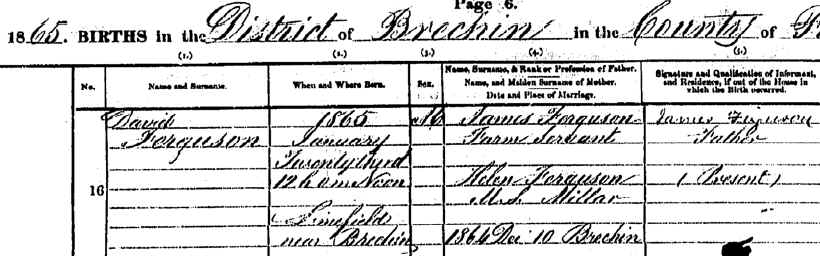 Page 6.
1865. BIRTHS in the District of Brechin in the County of
(1.) (2.) (3.) (4.) (5.)
No. Name and Surname. When and Where Born. Sex. Name, Surname, & Rank or Profession of Father. Signature and Qualification of Informant,
Name, and Maiden Surname of Mother. and Residence, if out of the House in
Date and Place of Marriage. which the Birth occurred.
David 1865 M James Ferguson James Ferguson
Ferguson January Farm Servant Father
Twenty third
12 h Noon Helen Ferguson (Present)
16 M.S. Millar
Limefield
near Brechin 1864 Dec 10 Brechin